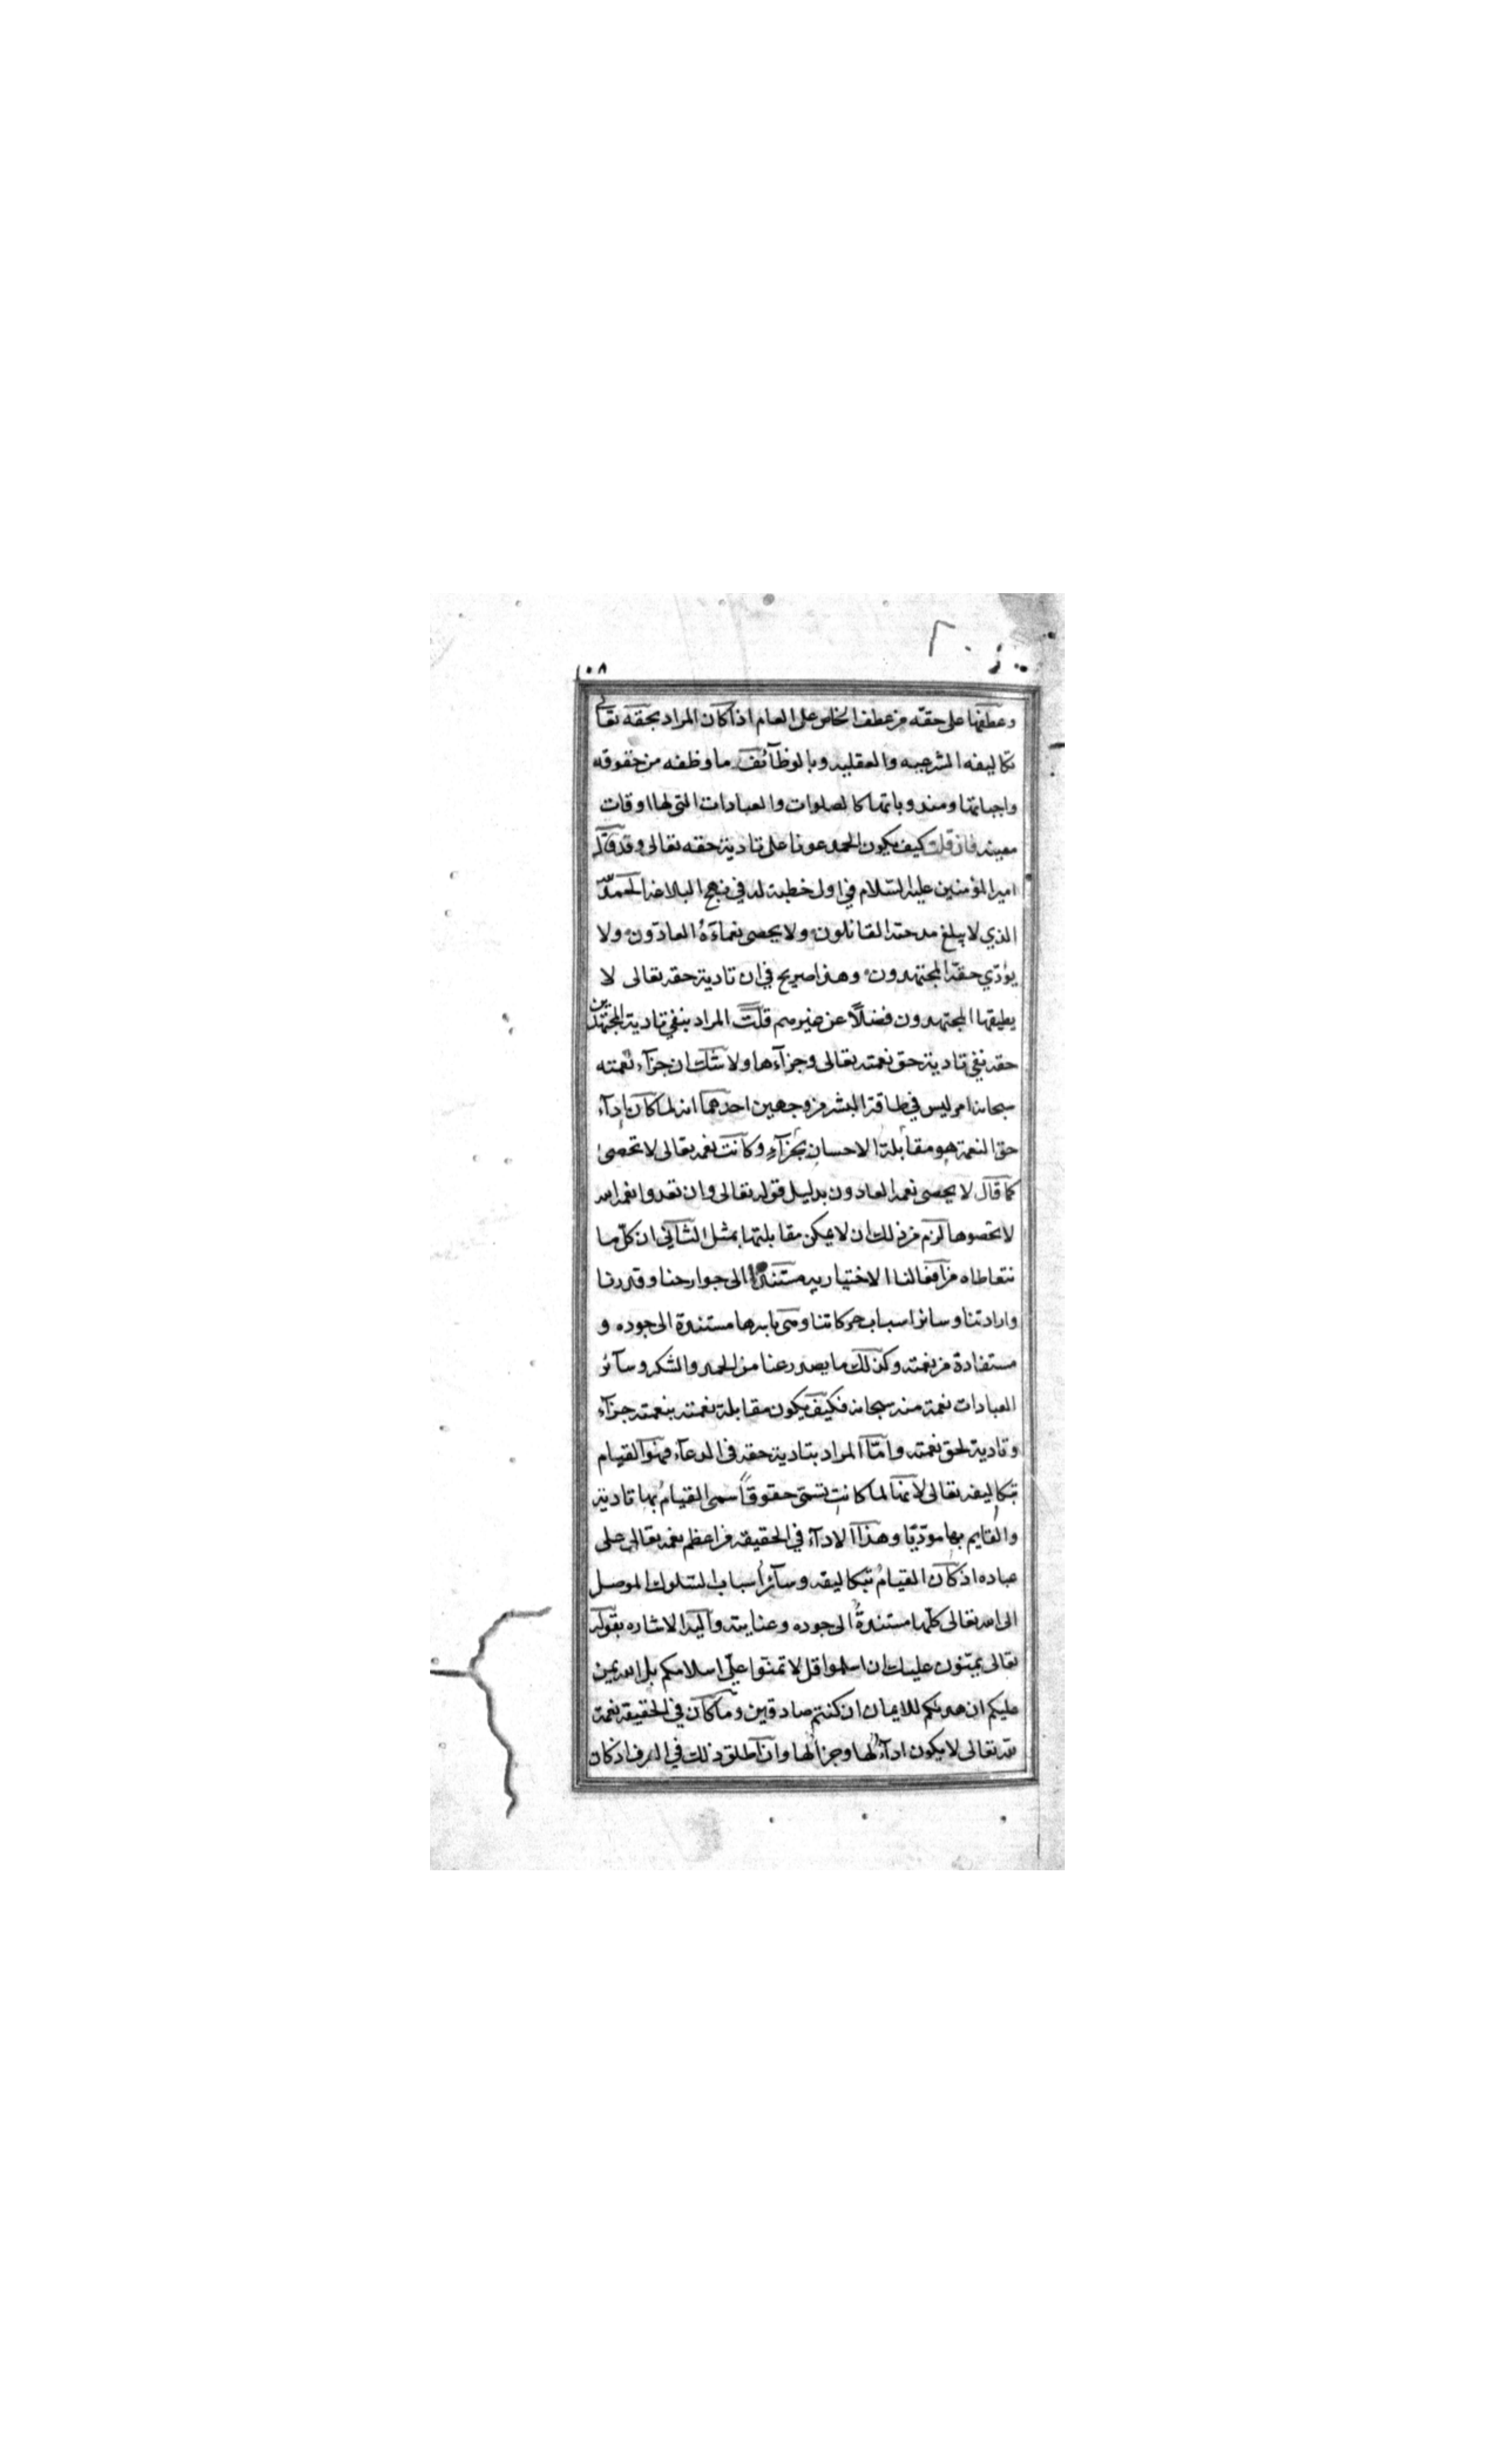 ١٠٨
وعطفها على حقه من عطف الخاص على العام اذا كان المراد بحقه تعالى
تكاليفه الشرعيه والعقليه وبالوظآئف ما وظفه من حقوقه
واجباتها ومندوباتها كالصلوات والعبادات التى لها اوقات
معينه فان قلت كيف يكون الحمد عونا على تادية حقه تعالى وقد قال
امير المؤمنين عليه السلام في اول خطبة له في نهج البلاغه الحمد لله
الذي لا يبلغ مدحته القائلون ولا يحصى نعمآءَهُ العادّون ولا
يؤدّي حقّه المجتهدون وهذا صريح في ان تادية حقه تعالى لا
يطيقها المجتهدون فضلاً عن غيرهم قلت المراد بنفي تادية المجتهدين
حقه نفي تادية حق نعمته تعالى وجزآءها ولا شك ان جزآء نعمته
سبحانه امر ليس في طاقة البشر من وجهين احدهما انه لما كان ادآء
حق النعمة هو مقابلة الاحسان بجزآءٍ وكانت نعمه تعالى لا تحصىٰ
كما قال لا يحصى نعمه العادون بدليل قوله تعالى وان تعدوا نعمة الله
لا تحصوها لزم من ذلك ان لا يمكن مقابلتها بمثل الثاني ان كلّ ما
نتعاطاه من افعالنا الاختياريه مستندًا الى جوارحنا وقدرتنا
وارادتنا وسائر اسباب حركاتنا وهى باسرها مستندة الى جوده و
مستفادة من نعمته وكذلك ما يصدر عنا من الحمد والشكر وسآئر
العبادات نعمة منه سبحانه فكيف يكون مقابلة نعمته بنعمته جزآء
وتادية لحق نعمته وامّا المراد بتادية حقه في الدعآء فهو القيام
بتكاليفه تعالى لانها لما كانت تسمّى حقوقاً سمى القيامُ بها تادية
والقايم بها مودّيًا وهذا الادآء في الحقيقه من اعظم نعمه تعالى على
عباده اذ كان القيامُ بتكاليفه وسآئرُ اسباب السّلوك الموصل
الى الله تعالى كلّها مستندةٌ الى جوده وعنايته واليه الاشاره بقوله
تعالى يمنّون عليك ان اسلموا قل لا تمنّوا علىّ اسلامكم بل الله يمن
عليكم ان هديكم للايمان ان كنتم صادقين وما كان في الحقيقه نعمة
لله تعالى لا يكون ادآءً لها وجزآلها وان اطلق ذلك في العرف اذ كان